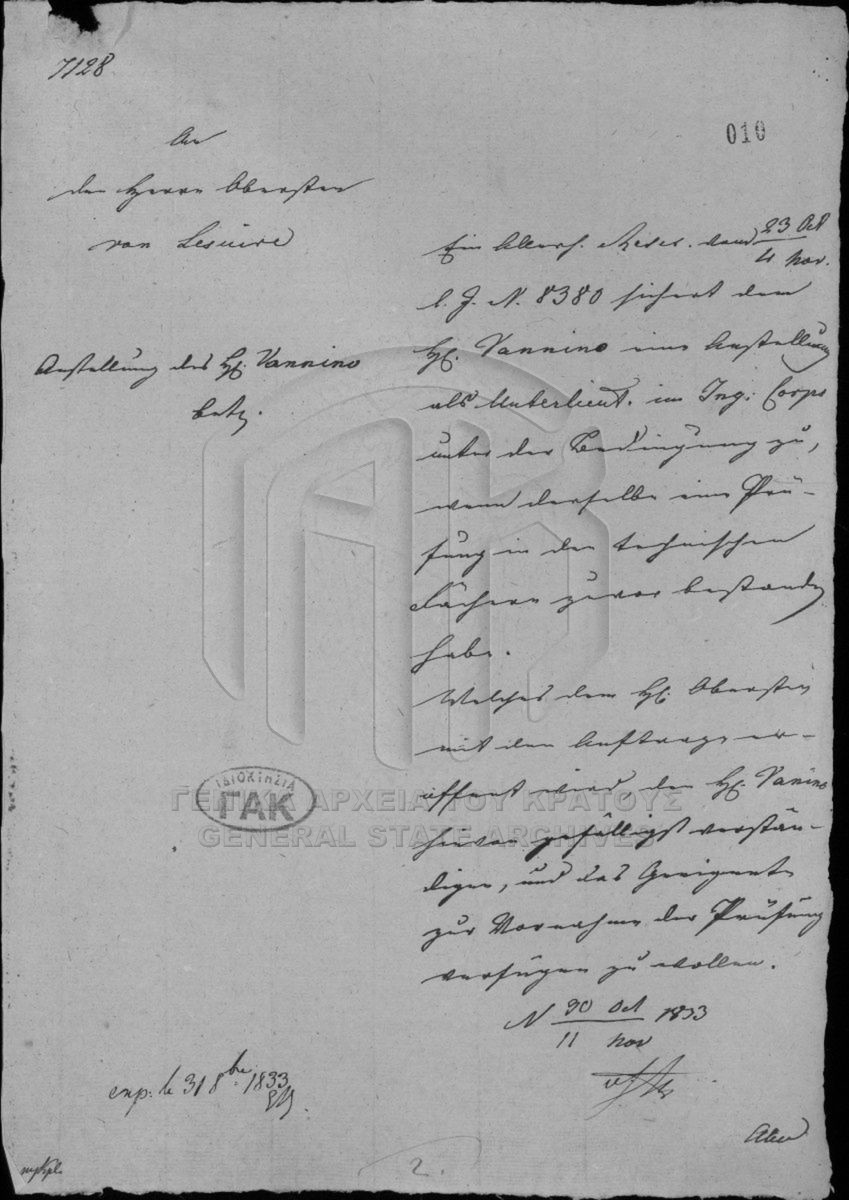 7128
010
An
den Herrn Obersten
von Lesuire
Anstellung des H. Vannino
betr.
Ein Allerh. Rescr. vom 23 Oct / 4 Nov.
l. J. N. 8380 sichert dem
H. Vannino eine Anstellung
als Unterlieut. im Ing: Corps
unter der Bedingung zu,
wenn derselbe eine Prü-
fung in den technischen
Fächern zuvor bestanden
habe.
Welches dem H. Obersten
mit dem Auftrage er-
öffnet wird den H. Vanino
hievon gefälligst verstän-
digen, und das Geeignete
zur Vornahme der Prüfung
verfügen zu wollen.
N 30 Oct / 11 Nov 1833
exp: le 31 8bre 1833
2.
ΙΔΙΟΚΤΗΣΙΑ
ΓΑΚ
ΓΕΝΙΚΑ ΑΡΧΕΙΑ ΤΟΥ ΚΡΑΤΟΥΣ
GENERAL STATE ARCHIVES